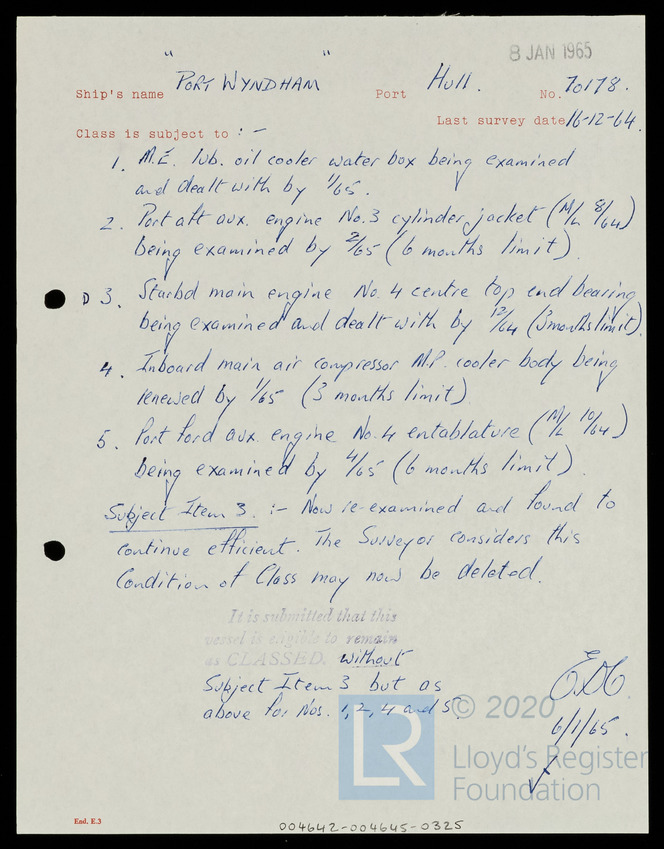 8 JAN 1965
Ship's name "PORT WYNDHAM" Port Hull. No. 70178.
Last survey date 16-12-64.
Class is subject to :-
1. M.E. lub. oil cooler water box being examined
and dealt with by 1/65.
2. Port aft aux. engine No.3 cylinder jacket (M/L 8/64)
being examined by 2/65 (6 months limit).
D 3. Starbd main engine No. 4 centre top end bearing
being examined and dealt with by 12/64 (3 months limit).
4. Inboard main air compressor M.P. cooler body being
renewed by 1/65 (3 months limit).
5. Port ford aux. engine No. 4 entablature (M/L 10/64)
being examined by 4/65 (6 months limit).
Subject Item 3. :- Now re-examined and found to
continue efficient. The Surveyor considers this
Condition of Class may now be deleted.
It is submitted that this
vessel is eligible to remain
as CLASSED. without
Subject Item 3 but as
above for Nos. 1, 2, 4 and 5.
6/1/65.
LR
© 2020
Lloyd's Register
Foundation
End. E.3
004642-004645-0325